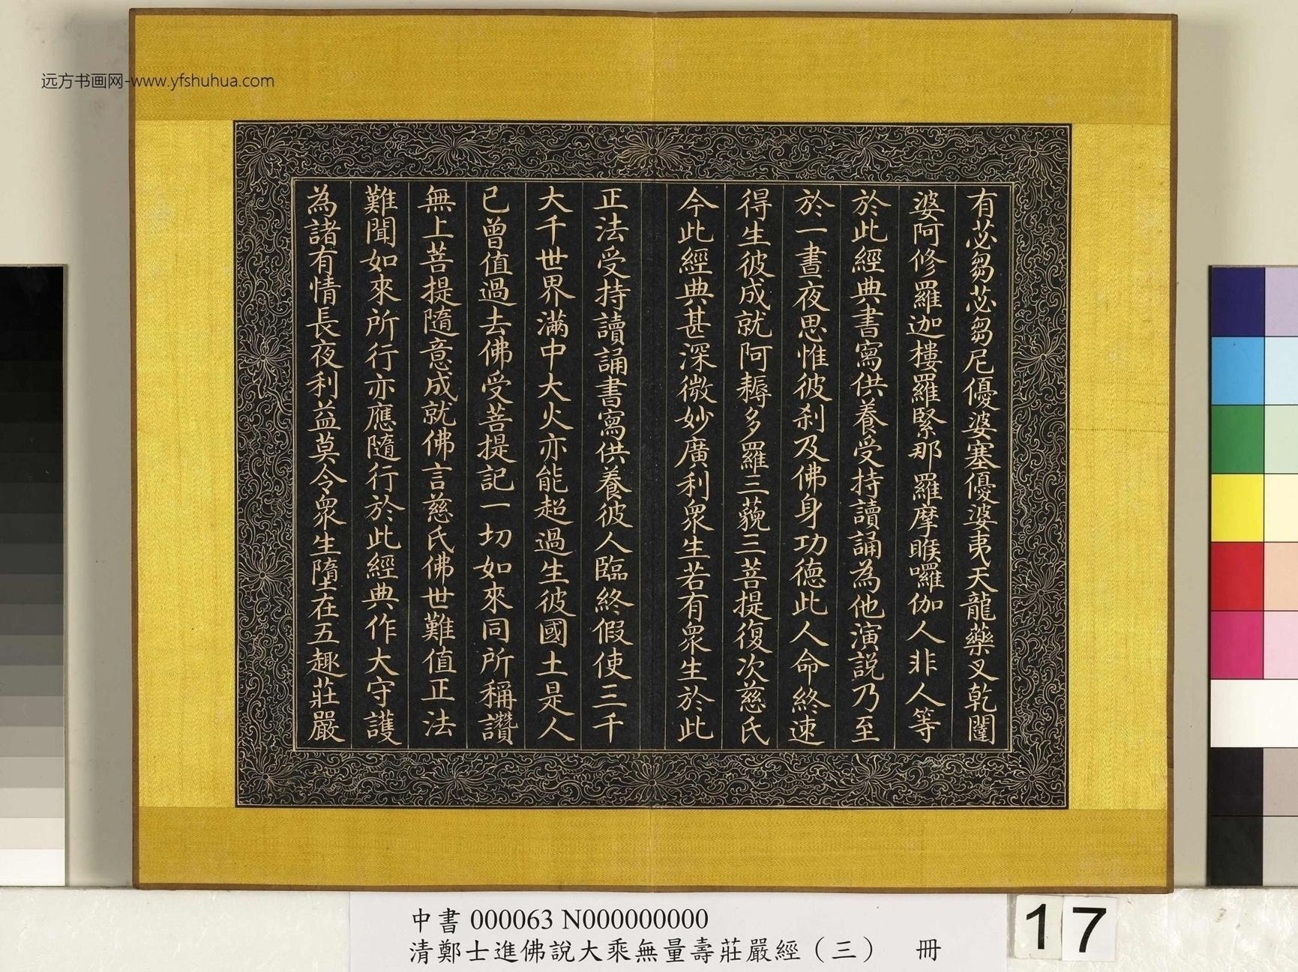 远方书画网-www.yfshuhua.com
有苾芻苾芻尼優婆塞優婆夷天龍藥叉乾闥
婆阿修羅迦樓羅緊那羅摩睺囉伽人非人等
於此經典書寫供養受持讀誦為他演說乃至
於一晝夜思惟彼刹及佛身功德此人命終速
得生彼成就阿耨多羅三藐三菩提復次慈氏
今此經典甚深微妙廣利眾生若有眾生於此
正法受持讀誦書寫供養彼人臨終假使三千
大千世界滿中大火亦能超過生彼國土是人
已曾值過去佛受菩提記一切如來同所稱讚
無上菩提隨意成就佛言慈氏佛世難值正法
難聞如來所行亦應隨行於此經典作大守護
為諸有情長夜利益莫令眾生墮在五趣莊嚴
中書 000063 N000000000
清鄭士進佛說大乘無量壽莊嚴經（三） 冊
17